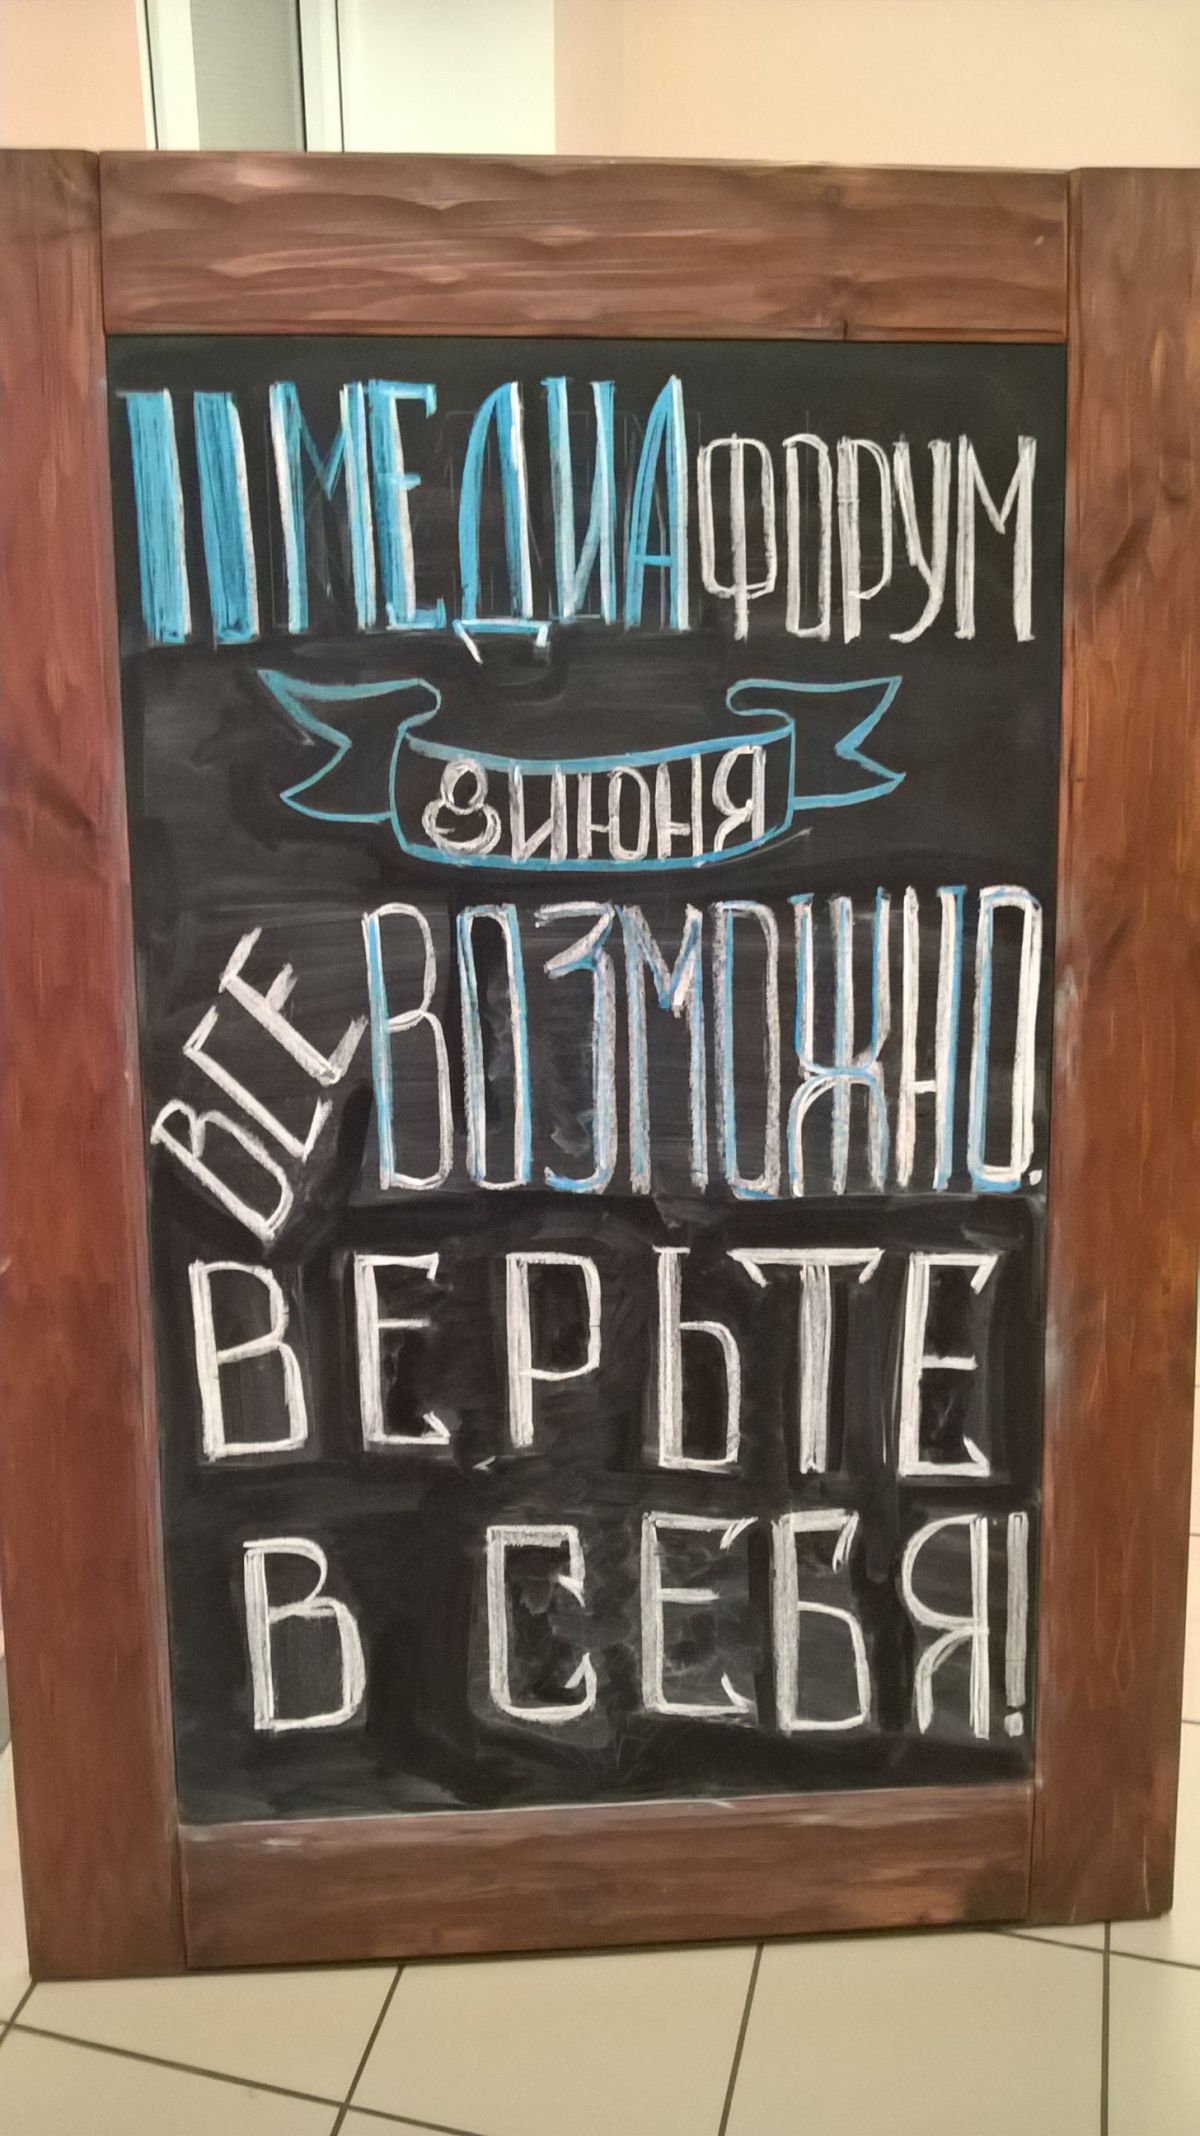 II МЕДИАФОРУМ
8 ИЮНЯ
ВСЕ ВОЗМОЖНО.
ВЕРЬТЕ
В СЕБЯ!